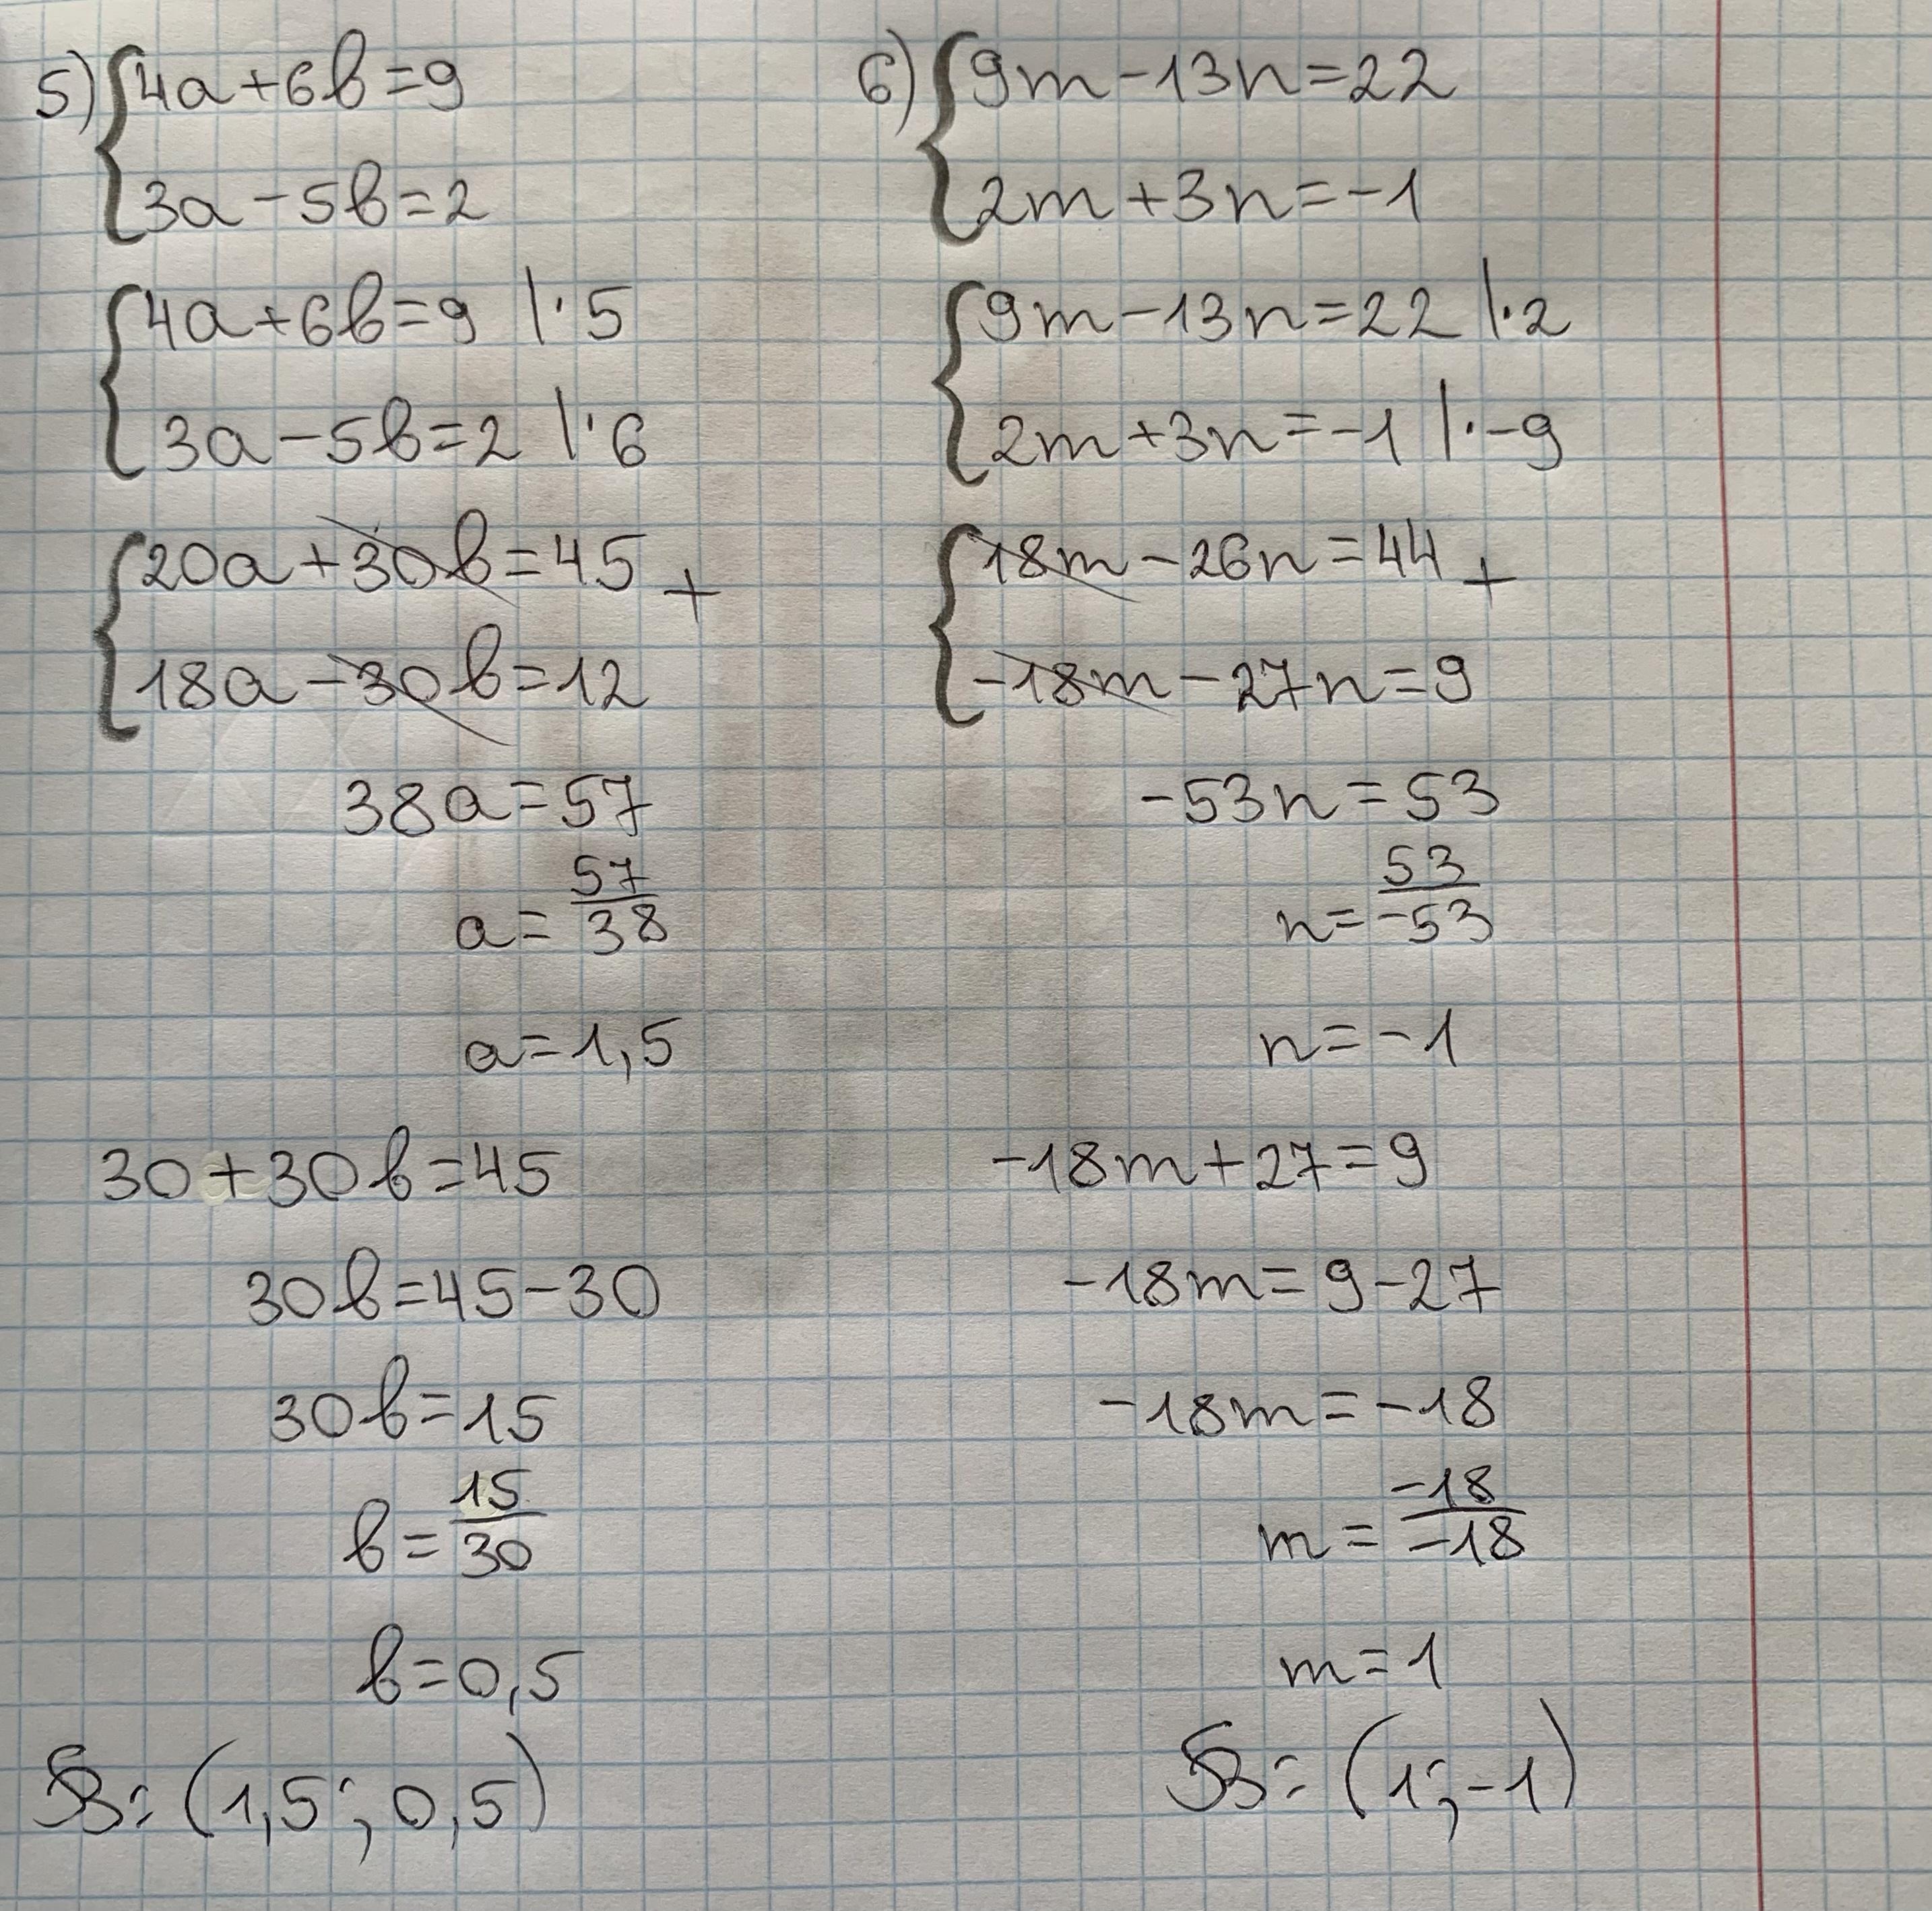 5) {4a+6b=9
3a-5b=2
{4a+6b=9 |·5
3a-5b=2 |·6
{20a+30b=45 +
18a-30b=12
38a=57
a=57/38
a=1,5
30+30b=45
30b=45-30
30b=15
b=15/30
b=0,5
В: (1,5; 0,5)
6) {9m-13n=22
2m+3n=-1
{9m-13n=22 |·2
2m+3n=-1 |·-9
{18m-26n=44 +
-18m-27n=9
-53n=53
n=53/-53
n=-1
-18m+27=9
-18m=9-27
-18m=-18
m=-18/-18
m=1
В: (1; -1)